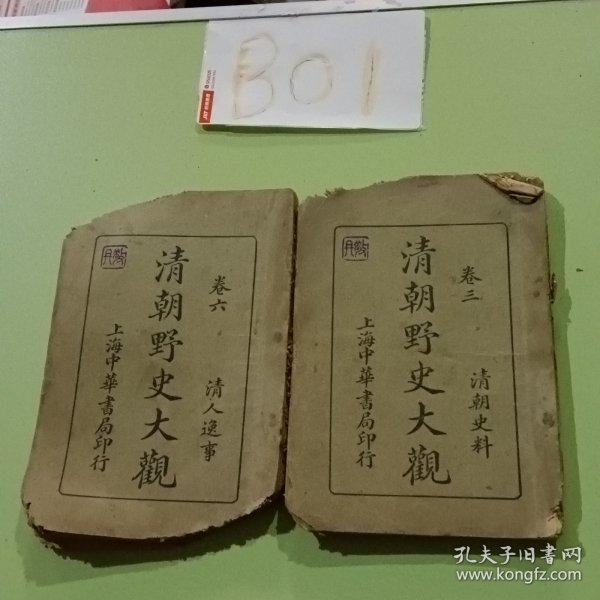 B01
卷六
清人逸事
清朝野史大觀
上海中華書局印行
卷三
清朝史料
清朝野史大觀
上海中華書局印行
孔夫子旧书网
www.kongfz.com